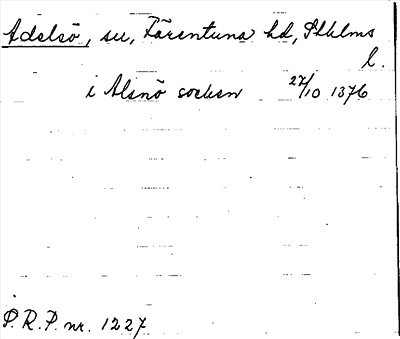 Adelsö, sn, Färentuna hd, Sthlms
l.
i Alsnö socken 27/10 1376
P.R.P. nr. 1227